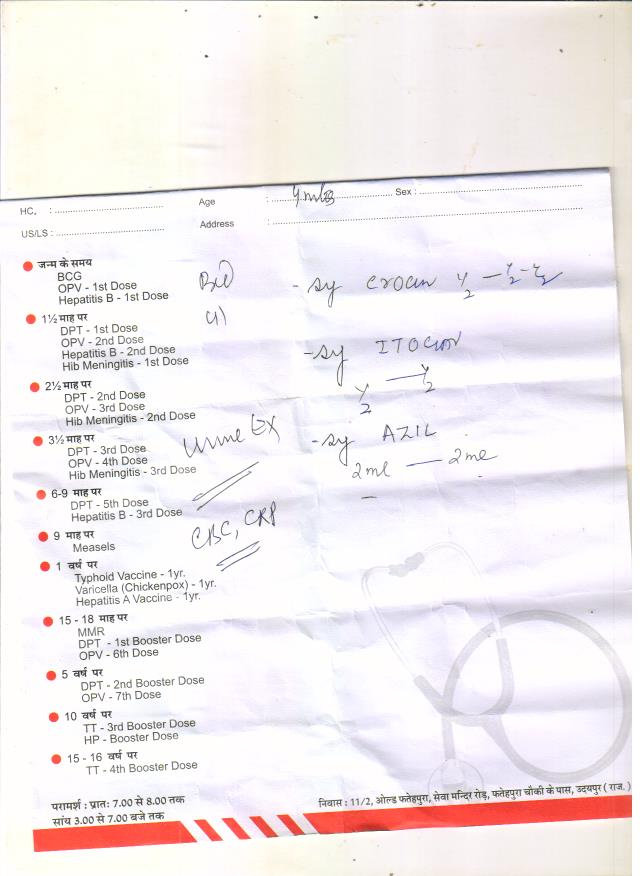 HC. : Age : Sex :
US/LS : Address :
जन्म के समय
BCG
OPV - 1st Dose
Hepatitis B - 1st Dose
1½ माह पर
DPT - 1st Dose
OPV - 2nd Dose
Hepatitis B - 2nd Dose
Hib Meningitis - 1st Dose
2½ माह पर
DPT - 2nd Dose
OPV - 3rd Dose
Hib Meningitis - 2nd Dose
3½ माह पर
DPT - 3rd Dose
OPV - 4th Dose
Hib Meningitis - 3rd Dose
6-9 माह पर
DPT - 5th Dose
Hepatitis B - 3rd Dose
9 माह पर
Measels
1 वर्ष पर
Typhoid Vaccine - 1yr.
Varicella (Chickenpox) - 1yr.
Hepatitis A Vaccine - 1yr.
15 - 18 माह पर
MMR
DPT - 1st Booster Dose
OPV - 6th Dose
5 वर्ष पर
DPT - 2nd Booster Dose
OPV - 7th Dose
10 वर्ष पर
TT - 3rd Booster Dose
HP - Booster Dose
15 - 16 वर्ष पर
TT - 4th Booster Dose
Urine Ex
CBC, CRP
- sy Crocin ½ - ½ - ½
- sy
½ — ½
- sy AZIL
2ml — 2ml
परामर्श : प्रातः 7.00 से 8.00 तक
सांय 3.00 से 7.00 बजे तक
निवास : 11/2, ओल्ड फतेहपुरा, सेवा मन्दिर रोड़, फतेहपुरा चौकी के पास, उदयपुर ( राज. )